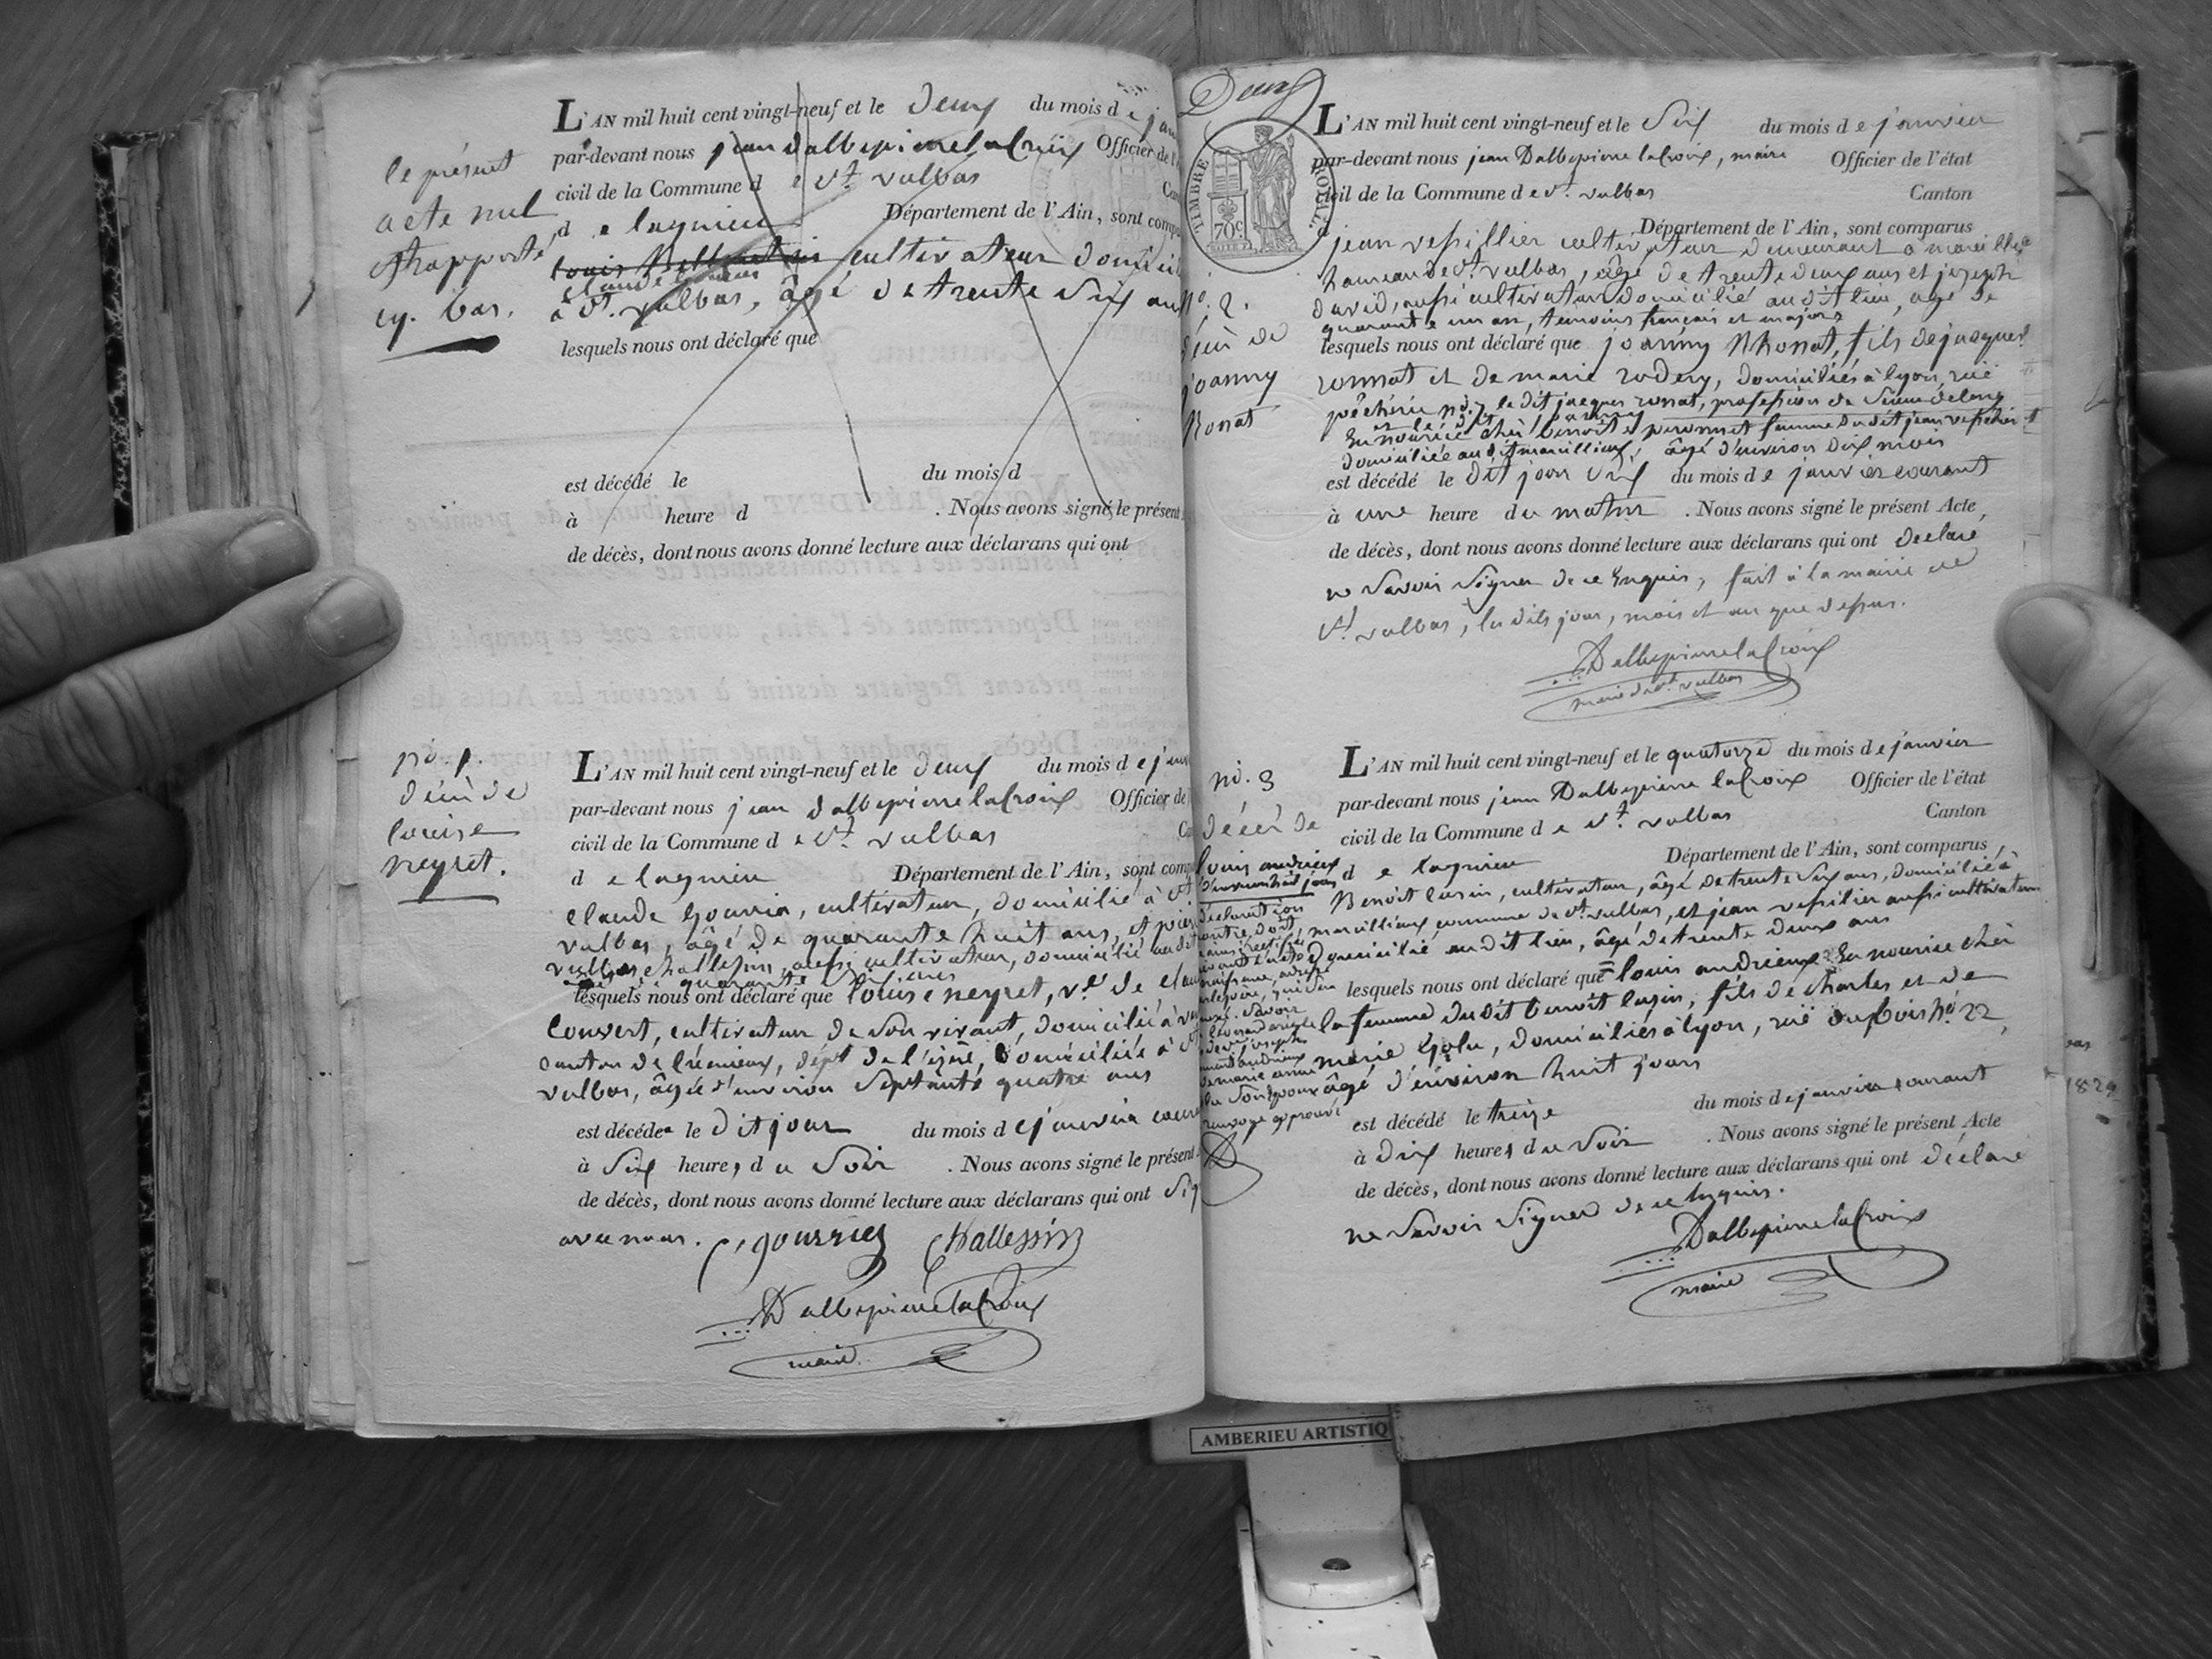 L'AN mil huit cent vingt-neuf et le deux du mois de jan
par-devant nous jean dalbepierre lacroix Officier de l'
civil de la Commune de St. vulbas
de lagnieu Département de l'Ain, sont comp
cultivateur domicil
claude
à St. vulbas, âgé de trente six ans
lesquels nous ont déclaré que
est décédé le du mois d
à heure d . Nous avons signé le présent
de décès, dont nous avons donné lecture aux déclarans qui ont
le présent
acte nul
et rapporté
cy. bas.
no. 1.
décès de
louise
neyret.
L'AN mil huit cent vingt-neuf et le deux du mois de janv
par-devant nous jean dalbepierre lacroix Officier de
civil de la Commune de St. vulbas
de lagnieu Département de l'Ain, sont comp
claude gourrier, cultivateur, domicilié à St.
vulbas, âgé de quarante huit ans, et pier
challessin, aussi cultivateur, domicilié audit
quarante six ans
lesquels nous ont déclaré que louise neyret, ve. de clau
Convert, cultivateur de son vivant, domicilié à
canton de crémieux, dépt. de l'izère, domiciliée à St.
vulbas, âgée d'environ septante quatre ans
est décédée le dit jour du mois de janvier cour
à six heures du soir . Nous avons signé le présent
de décès, dont nous avons donné lecture aux déclarans qui ont sig
avec nous. C, gourrier Challessin
Dalbepierre lacroix
maire
Deux
TIMBRE ROYAL
70c
L'AN mil huit cent vingt-neuf et le six du mois de janvier
par-devant nous jean Dalbepierre lacroix, maire Officier de l'état
civil de la Commune de St. vulbas Canton
d Département de l'Ain, sont comparus
jean vessillier cultivateur demeurant à
hameau de St. vulbas, âgé de trente deux ans et joseph
david, aussi cultivateur domicilié audit lieu, âgé de
quarante un an, temoins français et majors
lesquels nous ont déclaré que joanny Rhonat, fils de jacques
ronnat et de marie rodery, domiciliés à lyon, rue
pêcherie no. 7 le dit jacques ronat, profession de
et le dit joanny
En nourrice chés benoite peronnet femme du dit jean vessilier
domiciliée audit marcillieux, âgé d'environ dix mois
est décédé le dit jour six du mois de janvier courant
à une heure du matin . Nous avons signé le présent Acte,
de décès, dont nous avons donné lecture aux déclarans qui ont declaré
ne savoir signer de ce Enquis, fait à la mairie de
St. vulbas, les dits jour, mois et an que dessus.
Dalbepierre lacroix
maire de St. vulbas
no. 2.
décès de
joanny
Ronat
no. 3
décès de
louis andrieux
d'environ huit jours
déclaration
renvoye approuvé
L'AN mil huit cent vingt-neuf et le quatorze du mois de janvier
par-devant nous jean Dalbepierre lacroix Officier de l'état
civil de la Commune de St. vulbas Canton
de lagnieu Département de l'Ain, sont comparus,
Benoit lusin, cultivateur, âgé de trente six ans, domicilié à
marcillieux commune de St. vulbas, et jean vessilier aussi cultivateur
Domicilié audit lieu, âgé de trente deux ans
lesquels nous ont déclaré que louis andrieux En nourrice chés
la femme du dit benoit lusin, fils de charles et de
marie Golu, domiciliés à lyon, rue du bois no. 22,
âgé d'environ huit jours
est décédé le treize du mois de janvier courant
à dix heures du soir . Nous avons signé le présent Acte
de décès, dont nous avons donné lecture aux déclarans qui ont déclaré
ne savoir signer de ce Enquis.
Dalbepierre lacroix
maire
1829
AMBERIEU ARTISTIQ